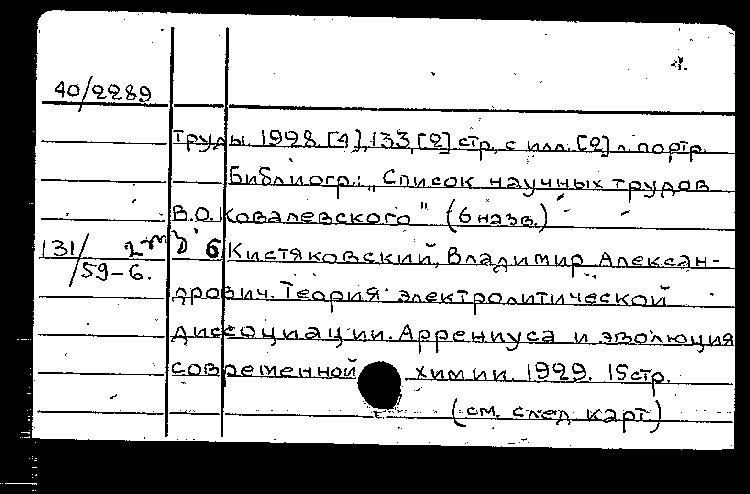 4.
40/2289
Труды. 1928. [4], 133, [2] стр., с илл. [2] л. портр.
Библиогр.: „Список научных трудов
В.О. Ковалевского" (6 назв.)
131/59-6. 6 Кистяковский, Владимир Алексан-
дрович. Теория электролитической
диссоциации. Аррениуса и эволюция
современной химии. 1929. 15 стр.
(см. след. карт.)